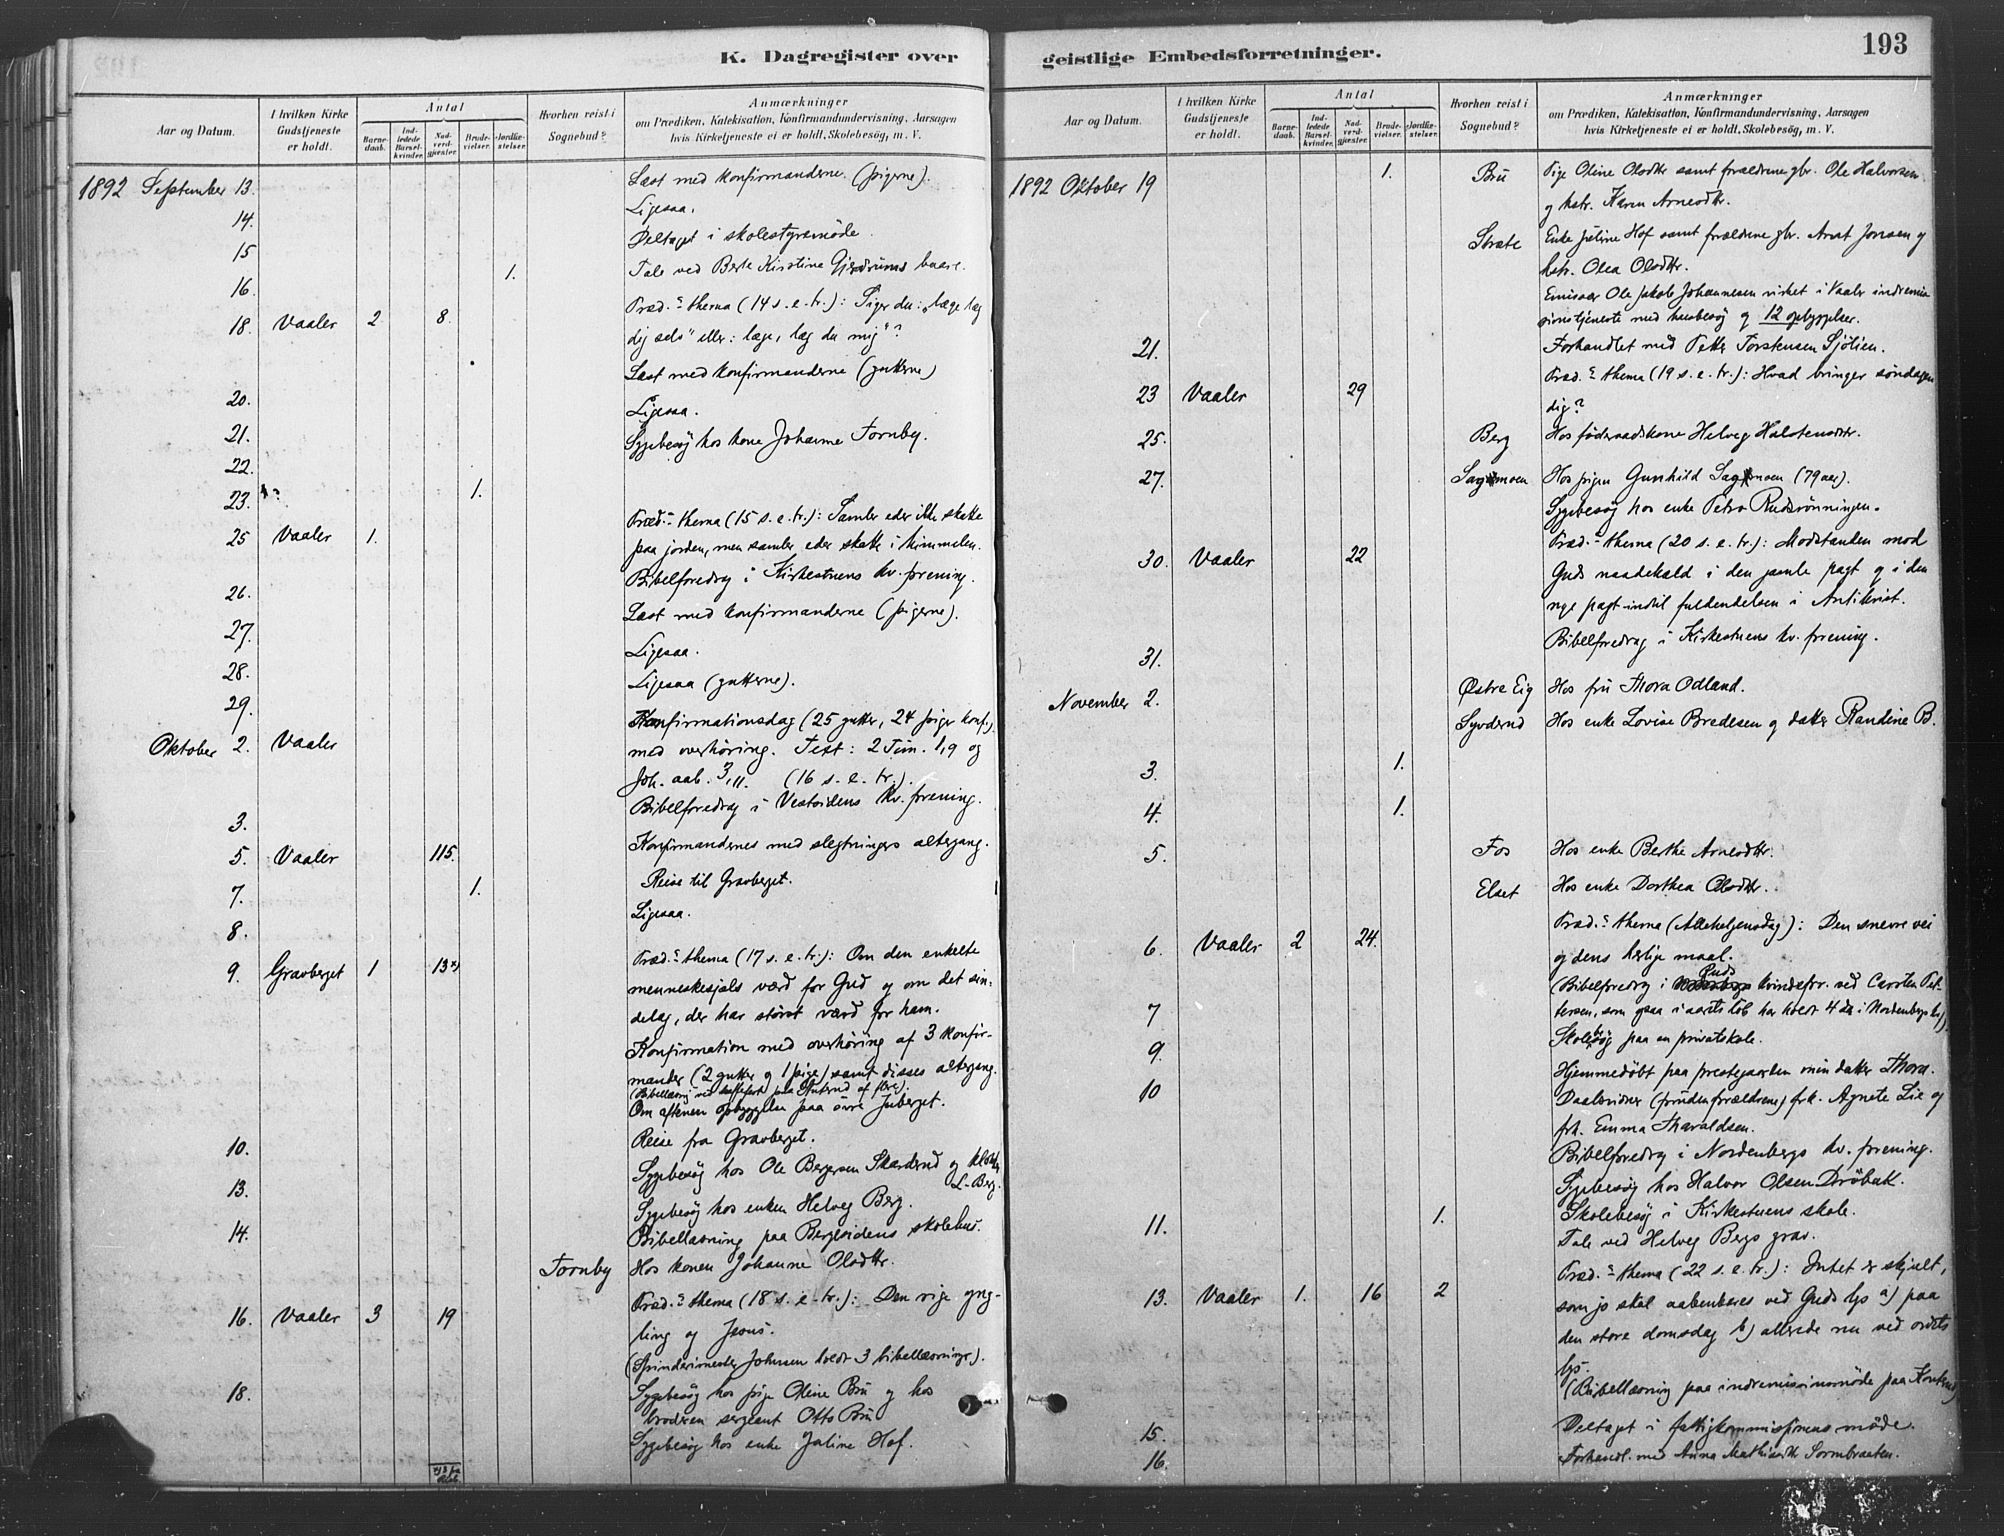 193
K. Dagregister over
Aar og Datum.
I hvilken Kirke
Gudstjeneste
er holdt.
Antal
Barne-
daab.
Ind-
ledede
Barsel-
kvinder.
Nad-
verd-
gjæster.
Brude-
vielser.
Jordfæ-
stelser.
Hvorhen reist i
Sognebud?
Anmærkninger
om Prædiken, Katekisation, Konfirmandundervisning, Aarsagen
hvis Kirketjeneste ei er holdt, Skolebesög, m. V.
1892 September 13. Læst med konfirmanderne (pigerne).
14. Ligesaa.
15 Deltaget i skolestyremöde.
16. 1. Tale ved Berte Kirstine Gjerdrums baare.
18. Vaaler 2 8. Præd.s thema (14 s. e. tr.): Siger du: „læge læg
dig selv" eller: læge, læg du mig"?
20. Læst med konfirmanderne (gutterne)
21. Ligesaa.
22. Sygebesög hos kone Johanne Fornby.
23. 1.
25 Vaaler 1. Præd.s thema (15 s. e. tr.): Samler eder ikke skatte
paa jorden, men samler eder skatte i himmelen.
26. Bibelforedrag i Kirkestuens kv. forening.
27. Læst med konfirmanderne (pigerne).
28. Ligesaa.
29. Ligesaa (gutterne).
Oktober 2. Vaaler Konfirmationsdag (25 gutter, 24 piger konf.)
med overhöring. Text: 2 Tim. 1,9 og
Joh. aab. 3,11. (16 s. e. tr.).
3. Bibelforedrag i Vestsidens kv. forening.
5. Vaaler 115. Konfirmandernes med slegtninges altergang.
7. 1. Reise til Gravberget.
8. Ligesaa.
9. Gravberget 1 13 x) Præd.s thema (17 s. e. tr.): Om den enkelte
menneskesjæls værd for Gud og om det sin-
delag, der har störst værd for ham.
Konfirmation med overhöring af 3 konfir-
mander (2 gutter og 1 pige) samt disses altergang.
Om aftenen opbyggelse paa övre Juberget.
10. Reise fra Gravberget.
13. Sygebesög hos Ole Bergersen Skarderud og
L. Berg.
14. Sygebesög hos enken Helveg Berg.
Bibellæsning paa Berglsidens skolehus.
Fornby Hos konen Johanne Olsdtr.
16. Vaaler 3 19 Præd.s thema (18 s. e. tr.): Den rige yng-
ling og Jesus.
(Spinderimester Johnsen holdt 3 bibellæsninger).
18. Sygebesög hos pige Oline Bru og hos
broderen sergeant Otto Bru
Sygebesög hos enke Jøline Hof.
geistlige Embedsforretninger.
Aar og Datum.
I hvilken Kirke
Gudstjeneste
er holdt.
Antal
Barne-
daab.
Ind-
ledede
Barsel-
kvinder.
Nad-
verd-
gjæster.
Brude-
vielser.
Jordfæ-
stelser.
Hvorhen reist i
Sognebud?
Anmærkninger
om Prædiken, Katekisation, Konfirmandundervisning, Aarsagen
hvis Kirketjeneste ei er holdt, Skolebesög, m. V.
1892 Oktober 19 1. Bru Pige Oline Olsdtr samt forældrene gbr. Ole Halvorsen
og hstr. Karen Arnesdtr.
Stræte Enke Jøline Hof samt forældrene gbr. Arnt Jonsen og
hstr. Olea Olsdtr.
Emissær Ole Jakob Johannesen virket i Vaaler indremis
sionstjeneste med husbesög og 12 opbyggelser.
21. Forhandlet med Petter Torstensen Sjölien.
23 Vaaler 29 Præd.s thema (19 s. e. tr.): Hvad bringer söndagen
dig?
25. Berg Hos föderaadskone Helveg Halstensdtr.
27. Sagmoen Hos pigen Gunhild Sagmoen (79 aar).
Sygebesög hos enke Petra Rudsrönningen.
30. Vaaler 22 Præd.s thema (20 s. e. tr.): Modstanden mod
Guds naadekald i den gamle pagt og i den
nye pagt indtil fuldendelsen i Antikrist.
31. Bibelforedrag i Kirkestuens kv. forening.
November 2. Östre Eig Hos fru Thora Odland.
Syvderud Hos enke Lovise Bredesen og datter Randine B.
3. 1.
4. 1.
5. Fos Hos enke Berthe Arnesdtr.
Elset Hos enke Dorthea Olsdtr.
6. Vaaler 2 24. Præd.s thema (Allehelgensdag): Den snevre vei
og dens herlige maal.
7 (Bibelforedrag i Ruds kvindefor. ved Carsten Pet-
tersen, som ogsaa i aarets löb har holdt 4 der i Nordenbergs kv.)
9. Skolebesög paa en privatskole.
10 Hjemmedöbt paa prestegaarden min datter Thora.
Daabsvidner (foruden forældrene) frk. Agnete Lie og
frk. Emma Tharaldsen.
Bibelforedrag i Nordenbergs kv. forening.
Sygebesög hos Halvor Olsen Dröbak.
11. 1. Skolebesög i Kirkestuens skole.
Tale ved Helveg Bergs grav.
13. Vaaler 1. 16 2 Præd.s thema (22 s. e. tr.): Intet er skjult,
som jo skal aabenbares ved Guds lys a) paa
den store domsdag b) allerede nu ved ordets
lys.
(Bibellæsning paa indremissionsmöde paa
15. Deltaget i fattigkommissionens möde.
16. Forhandl. med Anna Mathisdtr Sormbraaten.